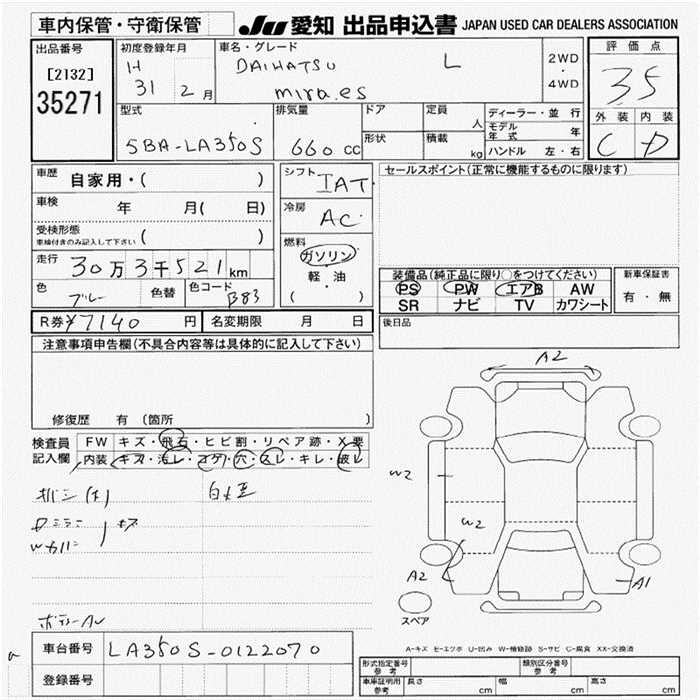 車内保管・守衛保管
JU 愛知 出品申込書 JAPAN USED CAR DEALERS ASSOCIATION
出品番号
[2132]
35271
初度登録年月
H
31 2月
車名・グレード
DAIHATSU L
mira.es
2WD
・
4WD
評価点
35
外装 内装
C D
型式
5BA-LA350S
排気量
660 cc
ドア
形状
定員
人
積載
kg
ディーラー・並行
モデル年式 年
ハンドル 左・右
車歴
自家用・( )
車検
年 月( 日)
受検形態
車検付きのみ記入して下さい ( )
走行
30万3千521km
色
ブルー
色替
色コード
B83
シフト
IAT
冷房
AC
燃料
ガソリン
・
軽・油
( )
セールスポイント(正常に機能するものに限ります)
装備品(純正品に限り○をつけてください)
PS PW エアB AW
SR ナビ TV カワシート
新車保証書
有・無
後日品
R券 ¥7140 円
名変期限 月 日
注意事項申告欄(不具合内容等は具体的に記入して下さい)
修復歴 有 (箇所 )
検査員
記入欄
FW キズ・飛石・ヒビ割・リペア跡・X要
内装 キズ・汚レ・コゲ・穴・スレ・キレ・破レ
A2
W2
W2
A2
A1
スペア
A-キズ E-エクボ U-凹み W-補修跡 S-サビ C-腐食 XX-交換済
車台番号
LA350S-0122070
登録番号
形式指定番号
参考
類別区分番号
参考
車庫証明用
参考
長さ cm
幅 cm
高さ cm